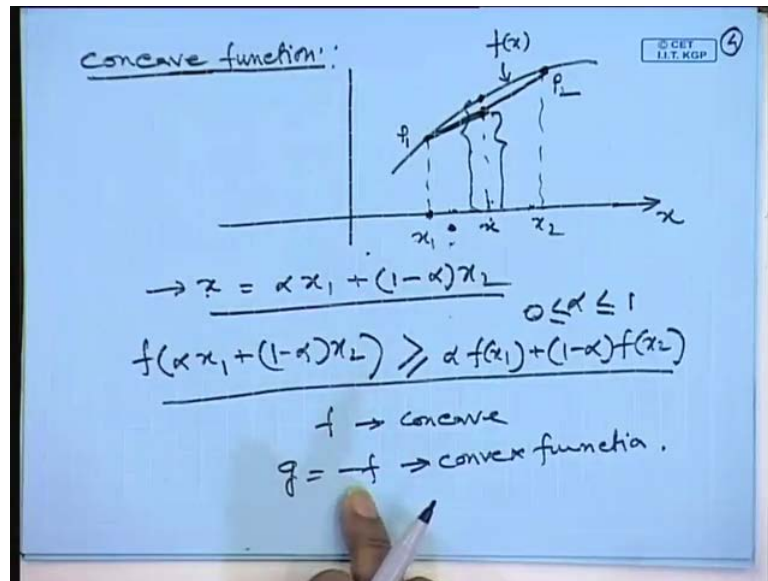 concave function:
f(x)
© CET
I.I.T. KGP
5
P₁
P₂
x₁
x
x₂
x
→ x = αx₁ + (1-α)x₂
0 ≤ α ≤ 1
f(αx₁+(1-α)x₂) ≥ αf(x₁)+(1-α)f(x₂)
f → concave
g = -f → convex functio.